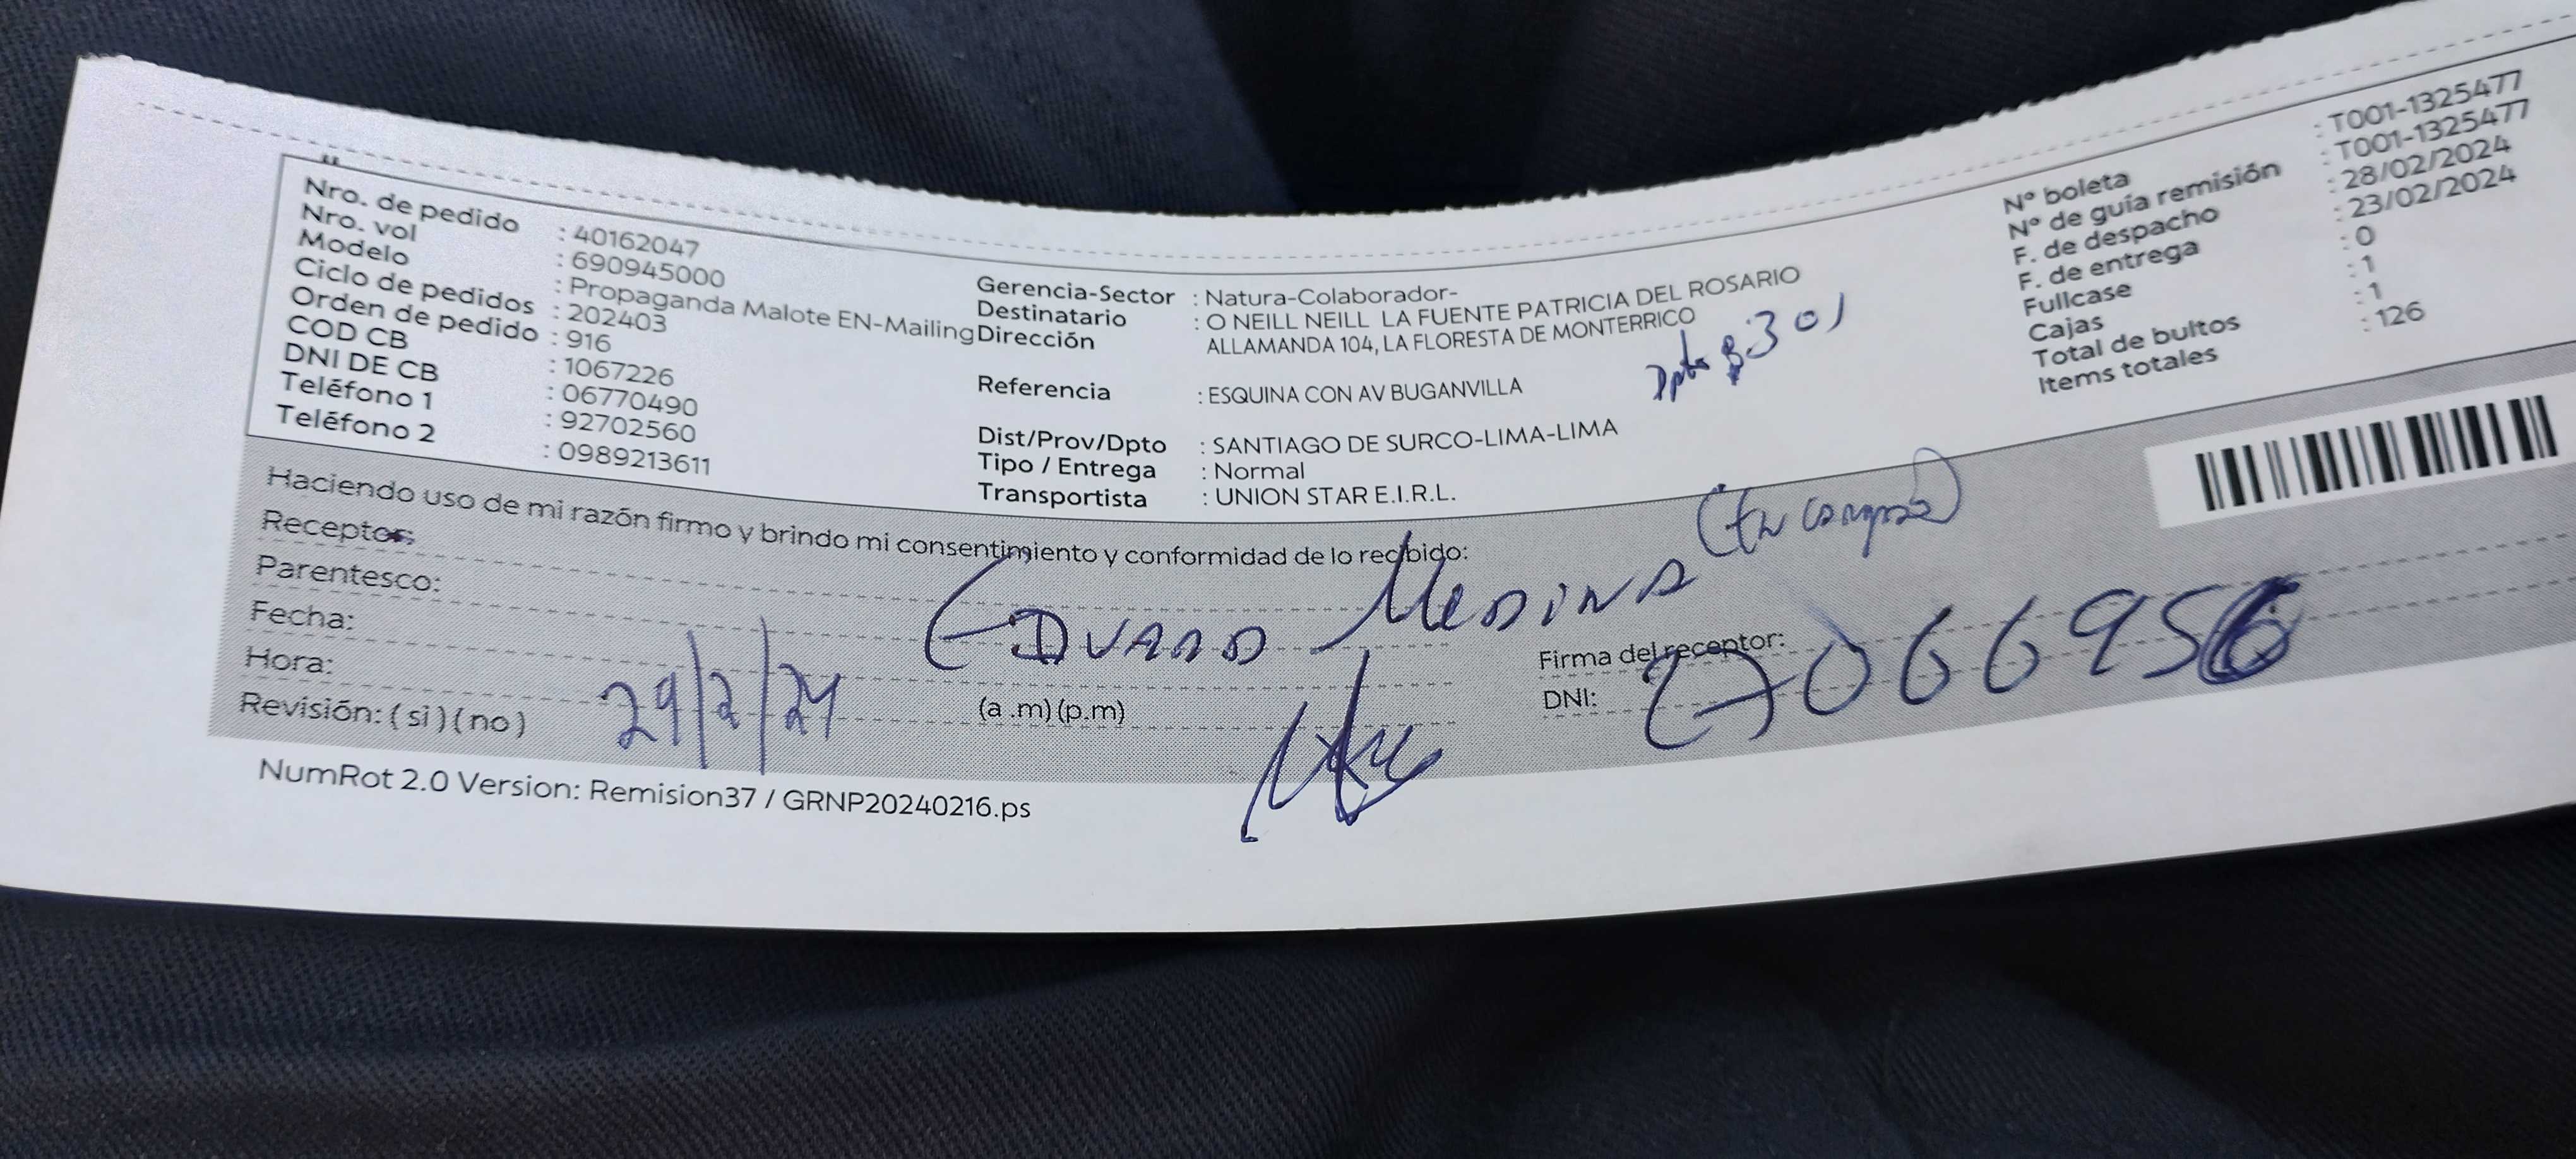 Nro. de pedido : 40162047
Nro. vol : 690945000
Modelo : Propaganda Malote EN-Mailing
Ciclo de pedidos : 202403
Orden de pedido : 916
COD CB : 1067226
DNI DE CB : 06770490
Teléfono 1 : 92702560
Teléfono 2 : 0989213611
Gerencia-Sector : Natura-Colaborador-
Destinatario : O NEILL NEILL LA FUENTE PATRICIA DEL ROSARIO
Dirección ALLAMANDA 104, LA FLORESTA DE MONTERRICO
Dpto B 301
Referencia : ESQUINA CON AV BUGANVILLA
Dist/Prov/Dpto : SANTIAGO DE SURCO-LIMA-LIMA
Tipo / Entrega : Normal
Transportista : UNION STAR E.I.R.L.
N° boleta : T001-1325477
N° de guía remisión : T001-1325477
F. de despacho : 28/02/2024
F. de entrega : 23/02/2024
Fullcase : 0
Cajas : 1
Total de bultos : 1
Items totales : 126
Haciendo uso de mi razón firmo y brindo mi consentimiento y conformidad de lo recibido:
Receptor:
Parentesco:
Eduardo Medina
Fecha: 29/2/24
Hora: (a .m) (p.m)
Revisión: ( si ) ( no )
Firma del receptor:
DNI:
NumRot 2.0 Version: Remision37 / GRNP20240216.ps